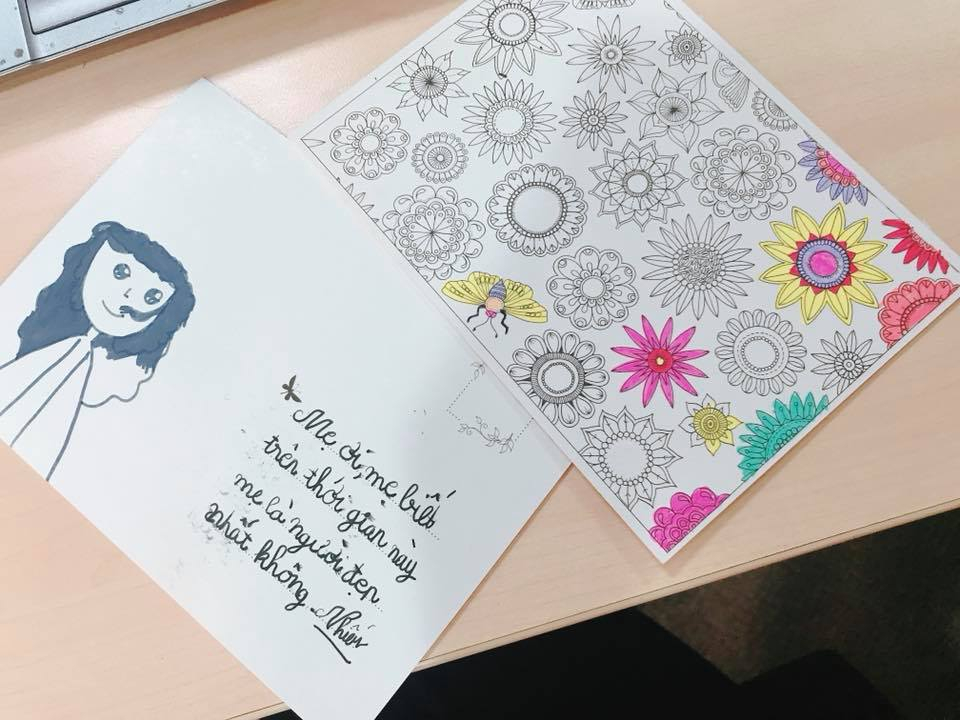 Mẹ ơi, mẹ biết
trên thới gian này
mẹ là người đẹp
nhất không
Nhiên